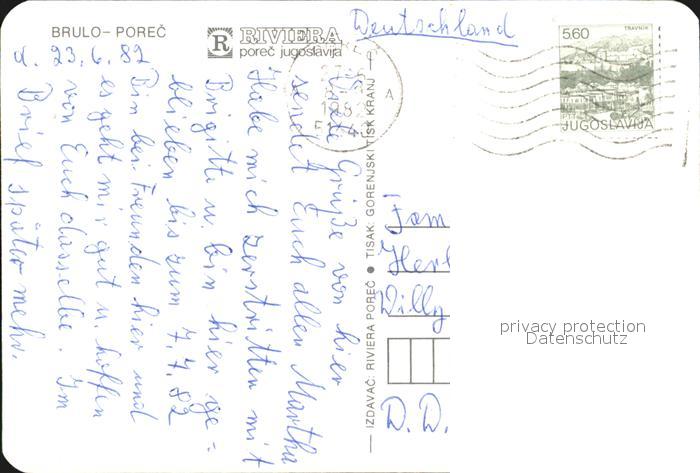 BRULO – POREČ
RIVIERA
poreč jugoslavija
Deutschland
5.60
TRAVNIK
JUGOSLAVIJA
d. 23. 6. 82
Viele Grüße von hier
sendet Euch allen Martha
Habe mich zerstritten mit
Brigitte u. bin hier ge=
blieben bis zum 7.7.82
Bin bei Freunden hier und
es geht mir gut u. hoffen
von Euch dasselbe. Im
Brief später mehr.
IZDAVAČ: RIVIERA POREČ ● TISAK: GORENJSKI TISK KRANJ
Fam
Her
Willy
D. D.
privacy protection
Datenschutz